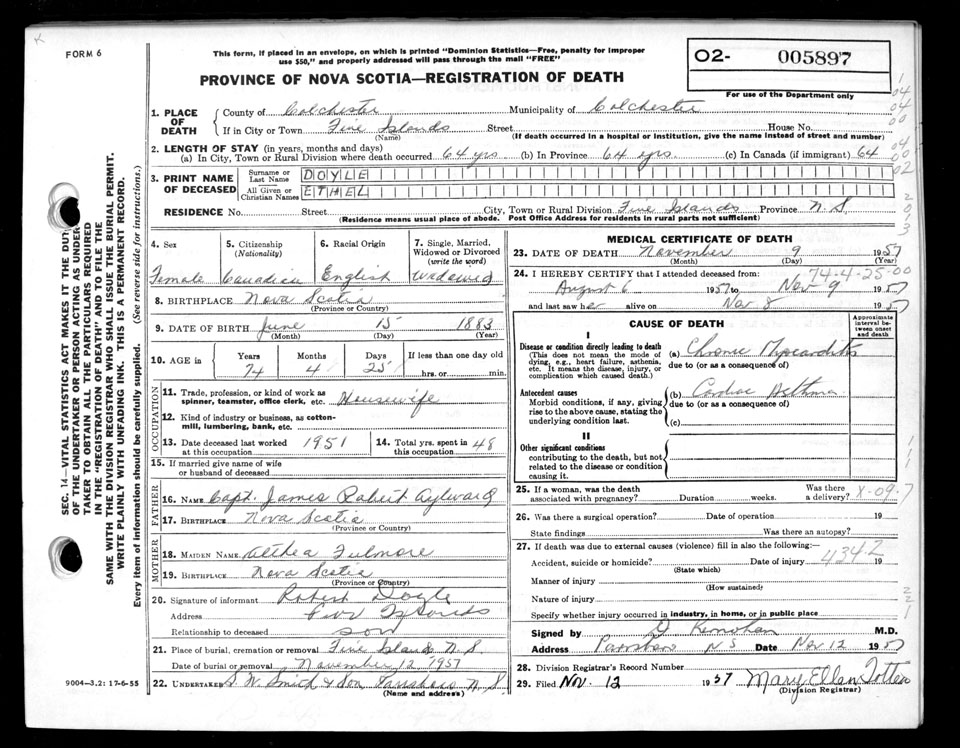 FORM 6
This form, if placed in an envelope, on which is printed "Dominion Statistics—Free, penalty for improper
use $50," and properly addressed will pass through the mail "FREE"
PROVINCE OF NOVA SCOTIA—REGISTRATION OF DEATH
02- 005897
For use of the Department only
1. PLACE OF DEATH County of Colchester Municipality of Colchester
If in City or Town Five Islands Street House No.
(Name) (If death occurred in a hospital or institution, give the name instead of street and number)
2. LENGTH OF STAY (in years, months and days)
(a) In City, Town or Rural Division where death occurred 64 yrs (b) In Province 64 yrs. (c) In Canada (if immigrant) 64
3. PRINT NAME OF DECEASED Surname or Last Name DOYLE
All Given or Christian Names ETHEL
RESIDENCE No. Street City, Town or Rural Division Five Islands Province N.S
(Residence means usual place of abode. Post Office Address for residents in rural parts not sufficient)
4. Sex 5. Citizenship (Nationality) 6. Racial Origin 7. Single, Married, Widowed or Divorced (write the word)
Female Canadian English Widowed
8. BIRTHPLACE Nova Scotia
(Province or Country)
9. DATE OF BIRTH June 15 1883
(Month) (Day) (Year)
10. AGE in Years Months Days If less than one day old
74 4 25 hrs. or min.
OCCUPATION
11. Trade, profession, or kind of work as spinner, teamster, office clerk, etc. Housewife
12. Kind of industry or business, as cotton-mill, lumbering, bank, etc.
13. Date deceased last worked at this occupation 1951 14. Total yrs. spent in this occupation 48
15. If married give name of wife or husband of deceased
FATHER
16. NAME Capt. James Robert Aylward
17. BIRTHPLACE Nova Scotia
(Province or Country)
MOTHER
18. MAIDEN NAME Althea Fulmore
19. BIRTHPLACE Nova Scotia
(Province or Country)
20. Signature of informant Robert Doyle
Address Five Islands
Relationship to deceased son
21. Place of burial, cremation or removal Five Islands N.S.
Date of burial or removal November 12, 1957
22. UNDERTAKER S. W. Smith & Son Parrsboro N.S
(Name and address)
MEDICAL CERTIFICATE OF DEATH
23. DATE OF DEATH November 9 1957
(Month) (Day) (Year)
74-4-25-00
24. I HEREBY CERTIFY that I attended deceased from:
August 6 1957 to Nov 9 1957
and last saw her alive on Nov 8 1957
CAUSE OF DEATH
Approximate interval between onset and death
I
Disease or condition directly leading to death (a) Chronic Myocarditis
(This does not mean the mode of dying, e.g., heart failure, asthenia, etc. It means the disease, injury, or complication which caused death.) due to (or as a consequence of)
Antecedent causes (b) Cardiac Asthma
Morbid conditions, if any, giving rise to the above cause, stating the underlying condition last. due to (or as a consequence of)
(c)
II
Other significant conditions
contributing to the death, but not related to the disease or condition causing it.
25. If a woman, was the death associated with pregnancy? Duration weeks. Was there a delivery? X-09-7
26. Was there a surgical operation? Date of operation 19
State findings Was there an autopsy?
27. If death was due to external causes (violence) fill in also the following:—
4342
Accident, suicide or homicide? Date of injury 19
(State which)
Manner of injury
(How sustained)
Nature of injury
Specify whether injury occurred in industry, in home, or in public place
Signed by D Kernohan M.D.
Address Parrsboro N S Date Nov 12 1957
28. Division Registrar's Record Number
29. Filed Nov. 12 1957 Mary Ellen Totten
(Division Registrar)
9004-3.2: 17-6-55
SEC. 14—VITAL STATISTICS ACT MAKES IT THE DUTY
OF THE UNDERTAKER OR PERSON ACTING AS UNDER-
TAKER TO OBTAIN ALL THE PARTICULARS REQUIRED
IN THE "REGISTRATION OF DEATH" AND TO FILE THE
SAME WITH THE DIVISION REGISTRAR WHO SHALL ISSUE THE BURIAL PERMIT.
WRITE PLAINLY WITH UNFADING INK. THIS IS A PERMANENT RECORD.
Every item of information should be carefully supplied. (See reverse side for instructions.)